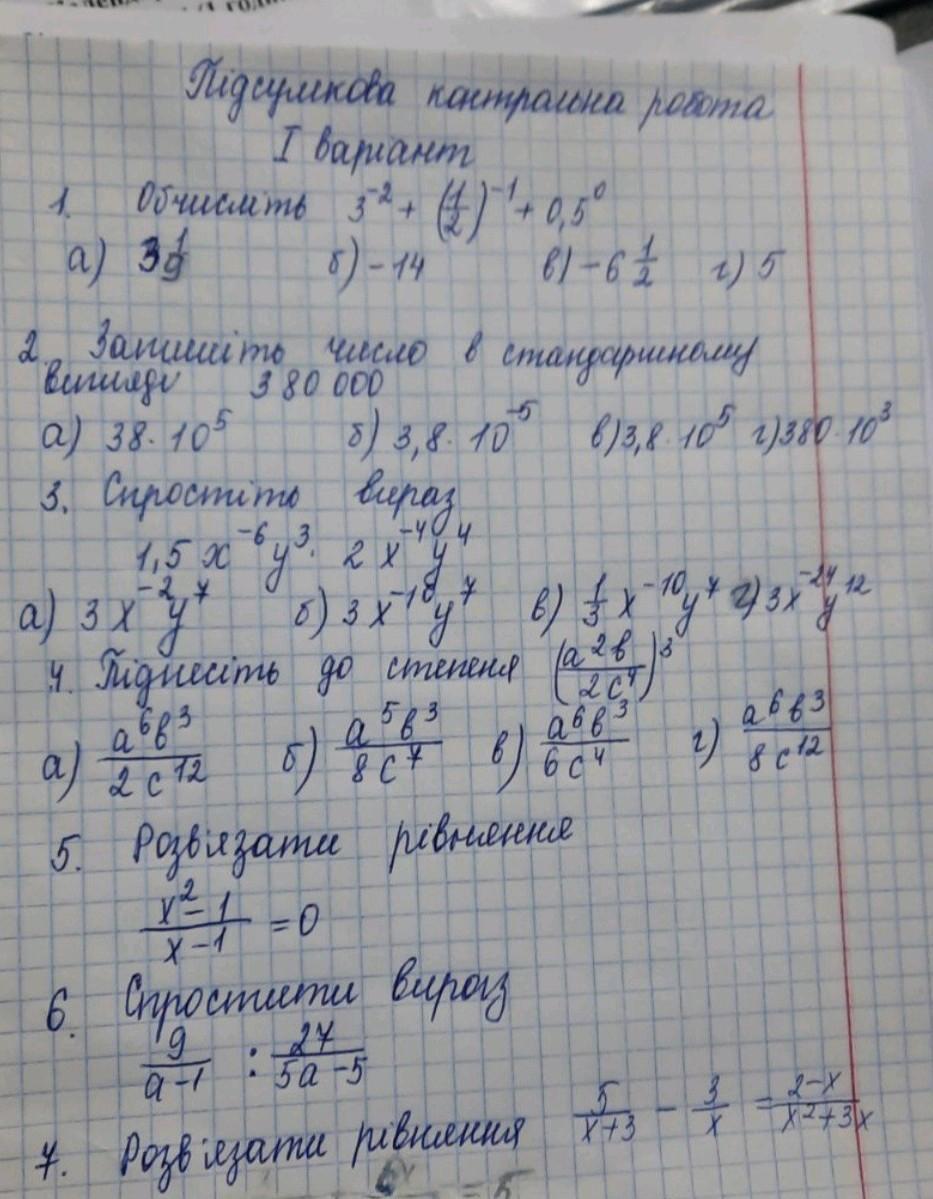 Підсумкова контрольна робота
I варіант
1. Обчисліть 3⁻² + (1/2)⁻¹ + 0,5⁰
а) 3 1/9 б) -14 в) -6 1/2 г) 5
2. Запишіть число в стандартному
вигляді 380 000
а) 38 · 10⁵ б) 3,8 · 10⁻⁵ в) 3,8 · 10⁵ г) 380 · 10³
3. Спростіть вираз
1,5 x⁻⁶ y³ · 2 x⁻⁴ y⁴
а) 3x⁻² y⁷ б) 3x⁻¹⁰ y⁷ в) 1/3 x⁻¹⁰ y⁷ г) 3x⁻²⁴ y¹²
4. Піднесіть до степеня (a²b/2c⁴)³
а) a⁶b³/2c¹² б) a⁵b³/8c⁷ в) a⁶b³/6c⁴ г) a⁶b³/8c¹²
5. Розв'язати рівняння
x²-1/x-1 = 0
6. Спростити вираз
9/a-1 : 27/5a-5
7. Розв'язати рівняння 5/x+3 - 3/x = 2-x/x²+3x